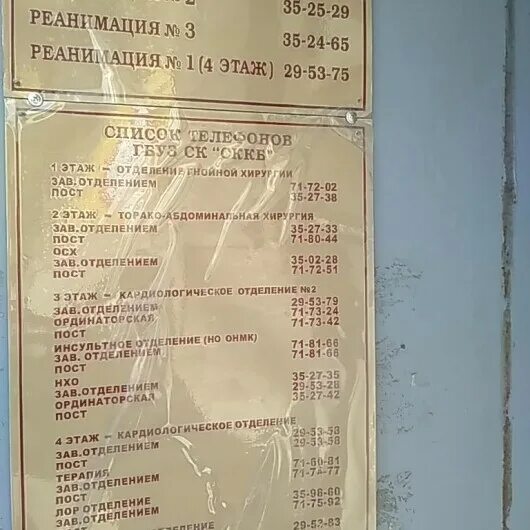 № 2 35-25-29
РЕАНИМАЦИЯ № 3 35-24-65
РЕАНИМАЦИЯ № 1 (4 ЭТАЖ) 29-53-75
СПИСОК ТЕЛЕФОНОВ
ГБУЗ СК "СККБ"
1 ЭТАЖ – ОТДЕЛЕНИЕ ГНОЙНОЙ ХИРУРГИИ
ЗАВ.ОТДЕЛЕНИЕМ 71-72-02
ПОСТ 35-27-38
2 ЭТАЖ – ТОРАКО-АБДОМИНАЛЬНАЯ ХИРУРГИЯ
ЗАВ.ОТДЕЛЕНИЕМ 35-27-33
ПОСТ 71-80-44
ОСХ
ЗАВ.ОТДЕЛЕНИЕМ 35-02-28
ПОСТ 71-72-51
3 ЭТАЖ – КАРДИОЛОГИЧЕСКОЕ ОТДЕЛЕНИЕ №2
ЗАВ.ОТДЕЛЕНИЕМ 29-53-79
ОРДИНАТОРСКАЯ 71-73-24
ПОСТ 71-73-42
ИНСУЛЬТНОЕ ОТДЕЛЕНИЕ (НО ОНМК)
ЗАВ. ОТДЕЛЕНИЕМ 71-81-66
ПОСТ 71-81-66
НХО
ЗАВ.ОТДЕЛЕНИЕМ 35-27-35
ОРДИНАТОРСКАЯ 29-53-28
ПОСТ 35-27-42
4 ЭТАЖ – КАРДИОЛОГИЧЕСКОЕ ОТДЕЛЕНИЕ
ЗАВ.ОТДЕЛЕНИЕМ 29-53-58
ПОСТ 29-53-58
ТЕРАПИЯ
ЗАВ.ОТДЕЛЕНИЕМ 71-60-81
ПОСТ 71-74-77
ЛОР ОТДЕЛЕНИЕ
ЗАВ.ОТДЕЛЕНИЕМ 35-98-60
71-75-92
29-53-83